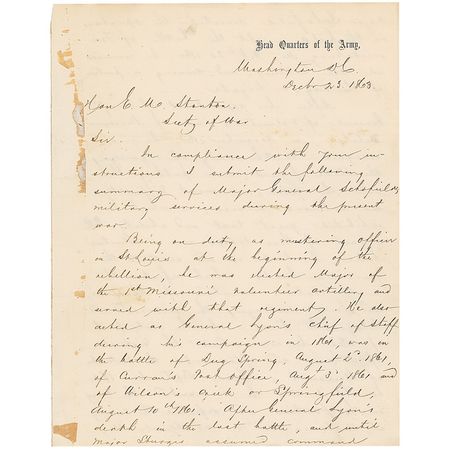 Head Quarters of the Army,
Washington D.C.
Decbr 23 1863.
Hon E. M. Stanton.
Secty of War
Sir.
In compliance with your in-
structions I submit the following
summary of Major General Schofields
military services during the present
war.
Being on duty as mustering officer
in St Louis at the beginning of the
rebellion, he was elected Major of
the 1st Missouri Volunteer artillery and
served with that regiment. He also
acted as General Lyon's chief of staff
during his campaign in 1861, was in
the battle of Dug Spring, August 2d 1861,
of Curran's Post Office, Augt 3d 1861 and
of Wilson's Creek or Springfield,
August 10th 1861. After General Lyon's
death in the last battle, and until
Major Sturgis assumed command